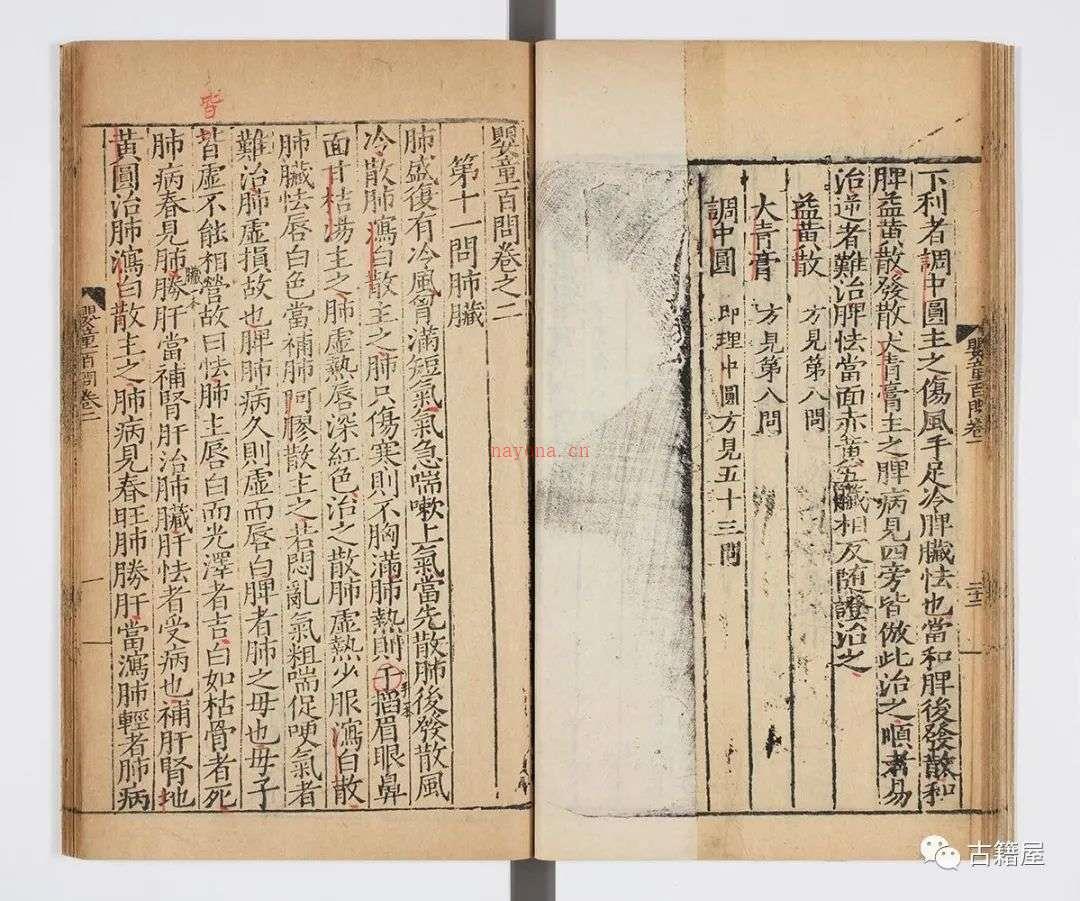 下利者調中圓主之傷風手足冷脾臟怯也當和脾後發散和
脾益黄散發散大青膏主之脾病見四旁皆倣此治之順者易
治逆者難治脾怯當面赤黄五臟相反随證治之
益黄散 方見第八問
大青膏 方見第八問
調中圓 即理中圓方見五十三問
嬰童百問卷
嬰童百問卷之二
第十一問肺臟
肺盛復有冷風胷滿短氣氣急喘嗽上氣當先散肺後發散風
冷散肺瀉白散主之肺只傷寒則不胸滿肺熱則手掐眉眼鼻
面甘桔湯主之肺虛熱唇深紅色治之散肺虛熱少服瀉白散
肺臟怯唇白色當補肺阿膠散主之若悶亂氣粗喘促哽氣者
難治肺虛損故也脾肺病久則虛而唇白脾者肺之母也母子
皆虛不能相營故曰怯肺主唇白而光澤者吉白如枯骨者死
肺病春見肺勝肝當補腎肝治肺臟肝怯者受病也補肝腎地
黄圓治肺瀉白散主之肺病見春旺肺勝肝當瀉肺輕者肺病
嬰童百問卷二
一
皆
nayona.cn
古籍屋